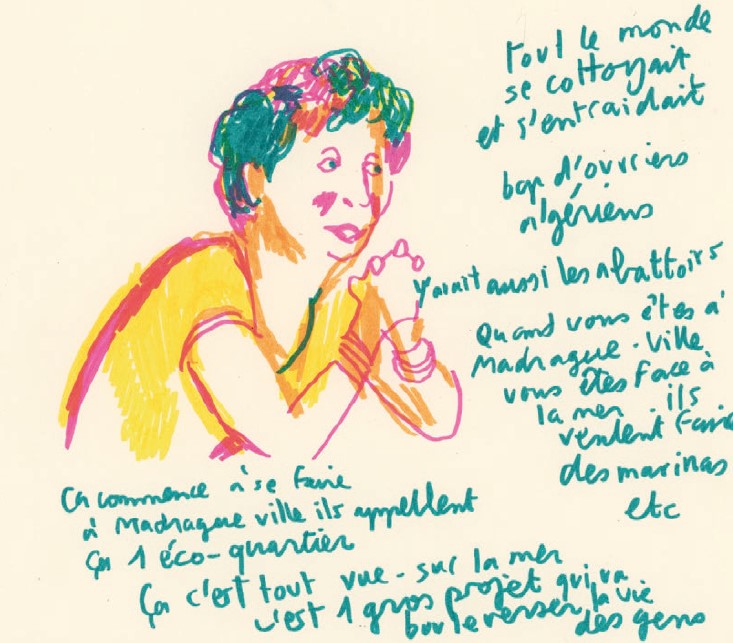 tout le monde
se cottoyait
et s'entraidait
bcp d'ouvriers
algériens
y'avait aussi les abattoirs
Quand vous êtes à
Madrague-ville
vous êtes face à
la mer. ils
veulent faire
des marinas
etc
Ça commence à se faire
à Madrague ville ils appellent
ça 1 éco-quartier
Ça c'est tout vue-sur la mer
c'est 1 gros projet qui va
bouleverser la vie
des gens